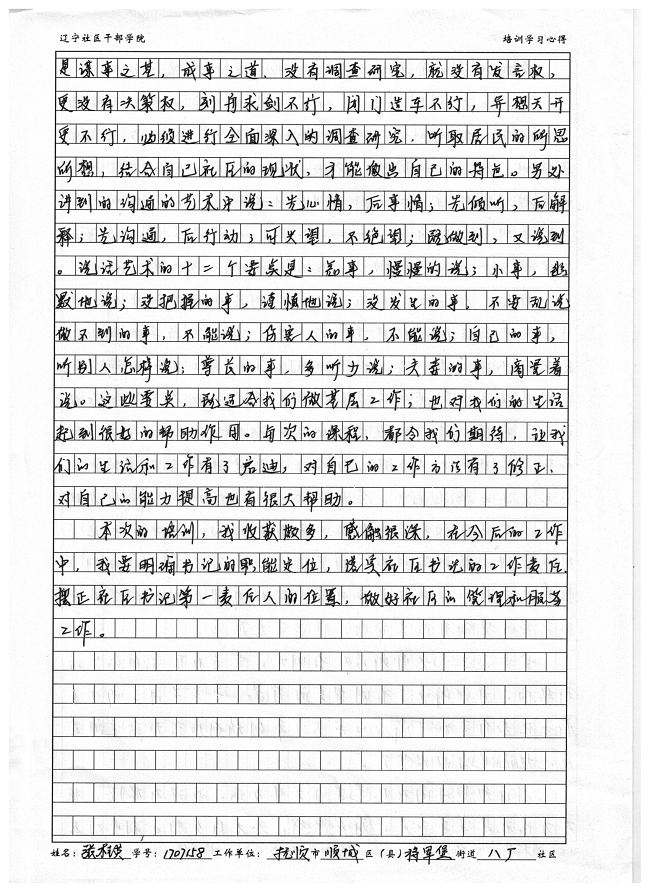 辽宁社区干部学院 培训学习心得
是谋事之基，成事之道，没有调查研究，就没有发言权，
更没有决策权，刻舟求剑不行，闭门造车不行，异想天开
更不行，必须进行全面深入的调查研究，听取居民的所思
所想，结合自己社区的现状，才能做出自己的特色。另外
讲到的沟通的艺术中说：先心情，后事情；先倾听，后解
释；先沟通，后行动；可失望，不绝望；既做到，又说到
。说话艺术的十二个要点是：急事，慢慢的说；小事，幽
默地说；没把握的事，谨慎地说；没发生的事，不要乱说
做不到的事，不能说；伤害人的事，不能说；自己的事，
听别人怎样说；尊长的事，多听少说；夫妻的事，商量着
说。这些要点，既适合我们做基层工作；也对我们的生活
起到很好的帮助作用。每次的课程，都令我们期待，让我
们的生活和工作有了启迪，对自己的工作方法有了修正，
对自己的能力提高也有很大帮助。
本次的培训，我收获颇多，感触很深，在今后的工作
中，我要明确书记的职能定位，接受社区书记的工作责任，
摆正社区书记第一责任人的位置，做好社区的管理和服务
工作。
姓名：张 学号：1707158 工作单位：抚顺市顺城区（县）将军堡街道 八厂 社区